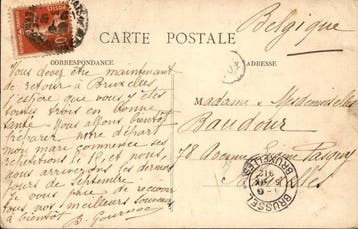 Belgique
CARTE POSTALE
CORRESPONDANCE
ADRESSE
Vous devez être maintenant
de retour à Bruxelles
j'espère que vous y êtes
toutes trois en bonne
santé. Nous allons bientôt
préparer notre départ
mon mari commence ses
répétitions le 15, et nous,
nous arriverons les derniers
jours de Septembre.
Je vous prie de recevoir
tous nos meilleurs souvenirs
à bientôt
B. Gournac
Madame & Mesdemoiselles
Baudour
78 Avenue
Bruxelles
BRUSSEL
BRUXELLES
1912